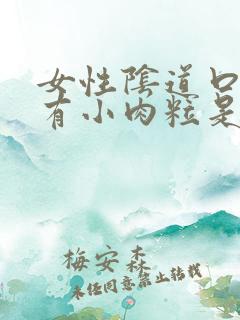 女性陰道口
有小肉粒是
梅安森
未经同意禁止转载